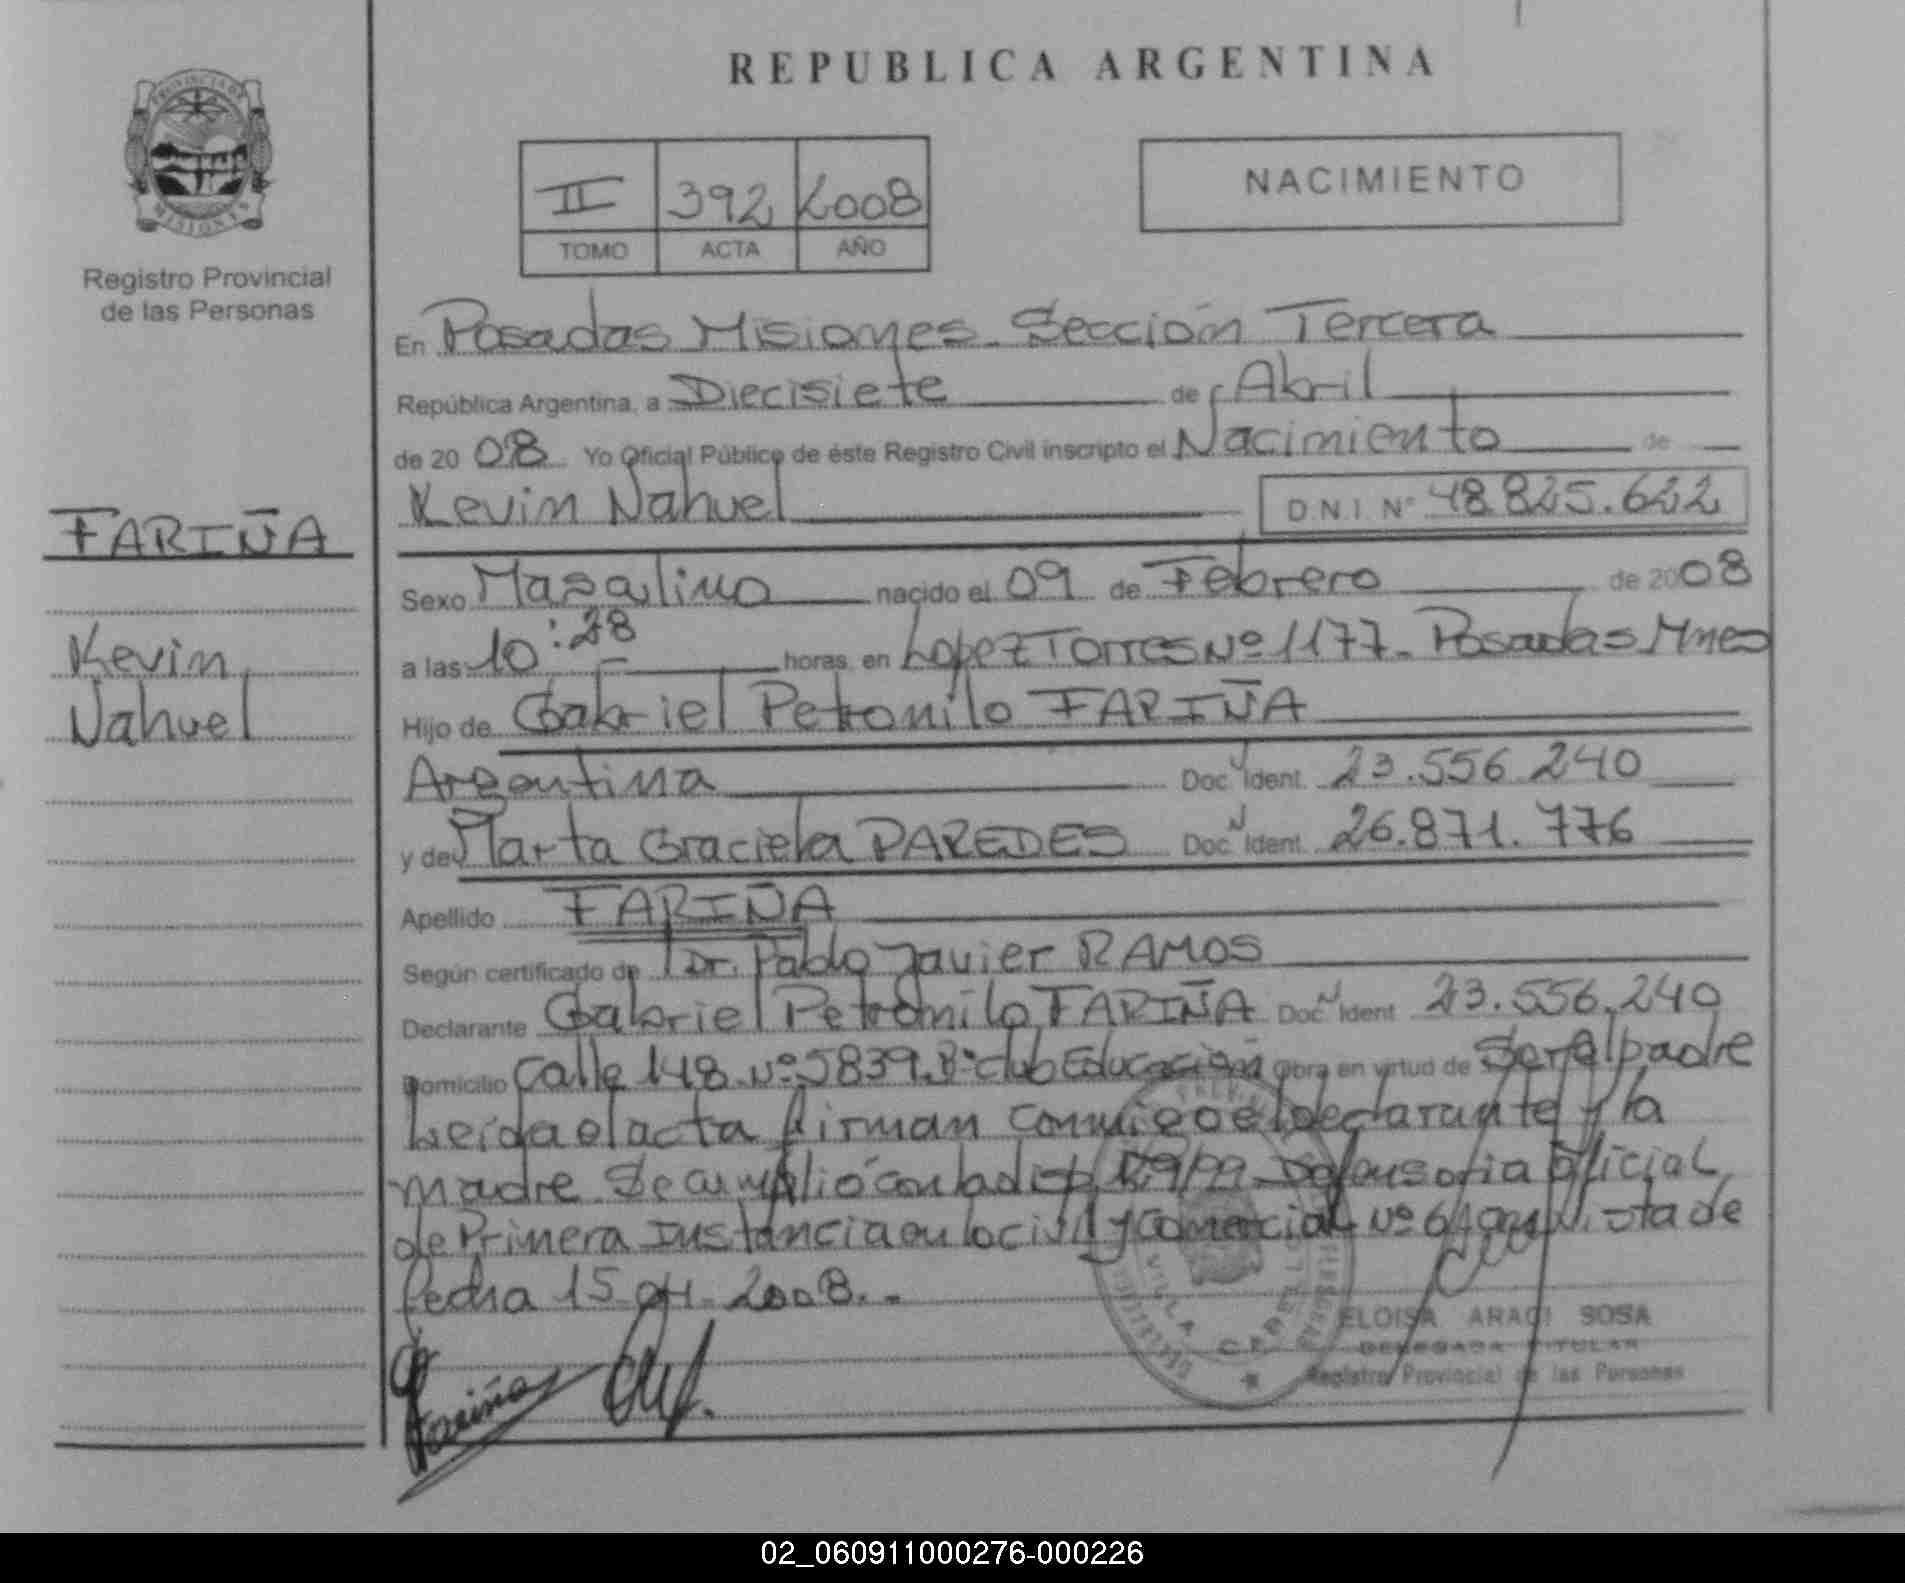 REPUBLICA ARGENTINA
PROVINCIA DE
MISIONES
Registro Provincial
de las Personas
II 392 2008
TOMO ACTA AÑO
NACIMIENTO
En Posadas Misiones. Sección Tercera
República Argentina, a Diecisiete de Abril
de 20 08 Yo Oficial Público de éste Registro Civil inscripto el Nacimiento de
Kevin Nahuel D.N.I. Nº 48.825.622
FARIÑA
Kevin
Nahuel
Sexo Masculino nacido el 09 de Febrero de 2008
a las 10:28 horas, en Lopez Torres Nº 1177. Posadas Mnes
Hijo de Gabriel Petronilo FARIÑA
Argentina Doc. Ident. 23.556.240
y de Marta Graciela PAREDES Doc. Ident. 26.871.776
Apellido FARIÑA
Según certificado de Dr. Pablo Javier RAMOS
Declarante Gabriel Petronilo FARIÑA Doc. Ident. 23.556.240
Domicilio Calle 148. Nº 5839. Bº Club Educación Obra en virtud de Ser el padre
Leída el acta firman conmigo el declarante y la
madre. Se cumplió con la disp. Defensoria Oficial
de Primera Instancia en lo civil y Comercial Nº 6 nota de
fecha 15.04.2008.-
VILLA CABELLO
ELOISA ARACI SOSA
DELEGADA TITULAR
Registro Provincial de las Personas
Fariña
02_060911000276-000226